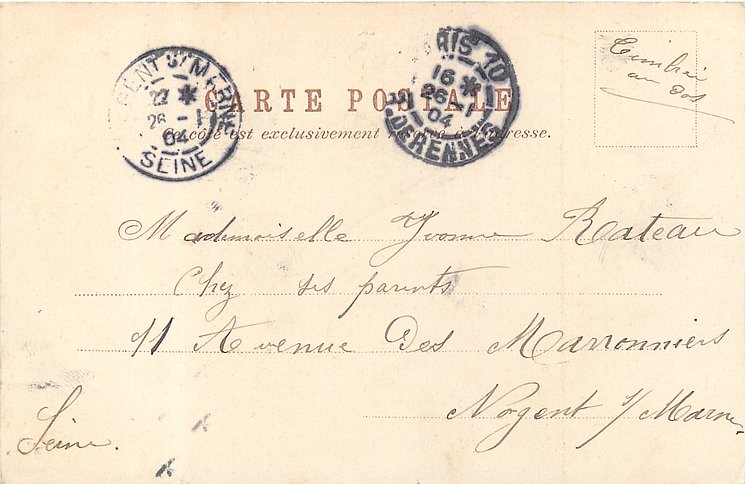 NOGENT S/ MARNE
22 *
26 - 1
04
SEINE
PARIS 10
16 *
26 - 1
04
R. DE RENNES
Timbre
au dos
CARTE POSTALE
Ce côté est exclusivement réservé à l'adresse.
Mademoiselle Yvonne Rateau
Chez ses parents
11 Avenue Des Marronniers
Nogent s/ Marne
Seine.